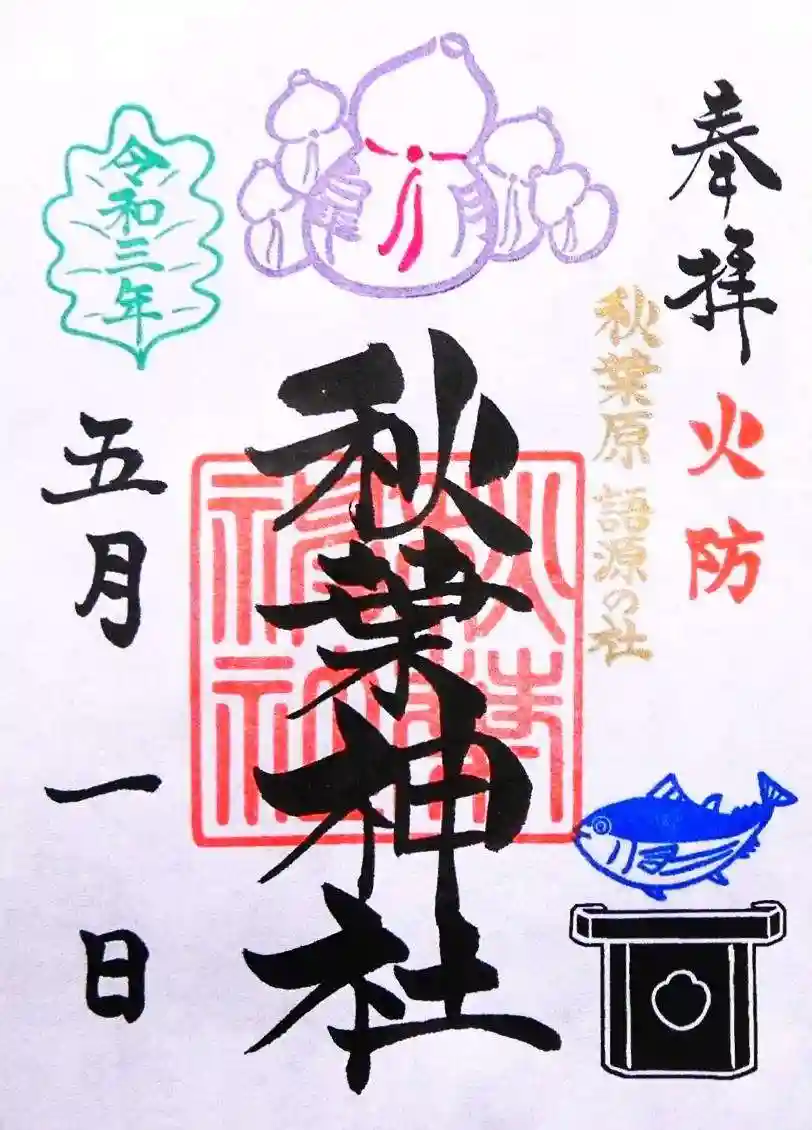 奉拝
火防
秋葉原 語源の社
皐月
秋葉神社
秋葉
神社
令和三年
五月一日